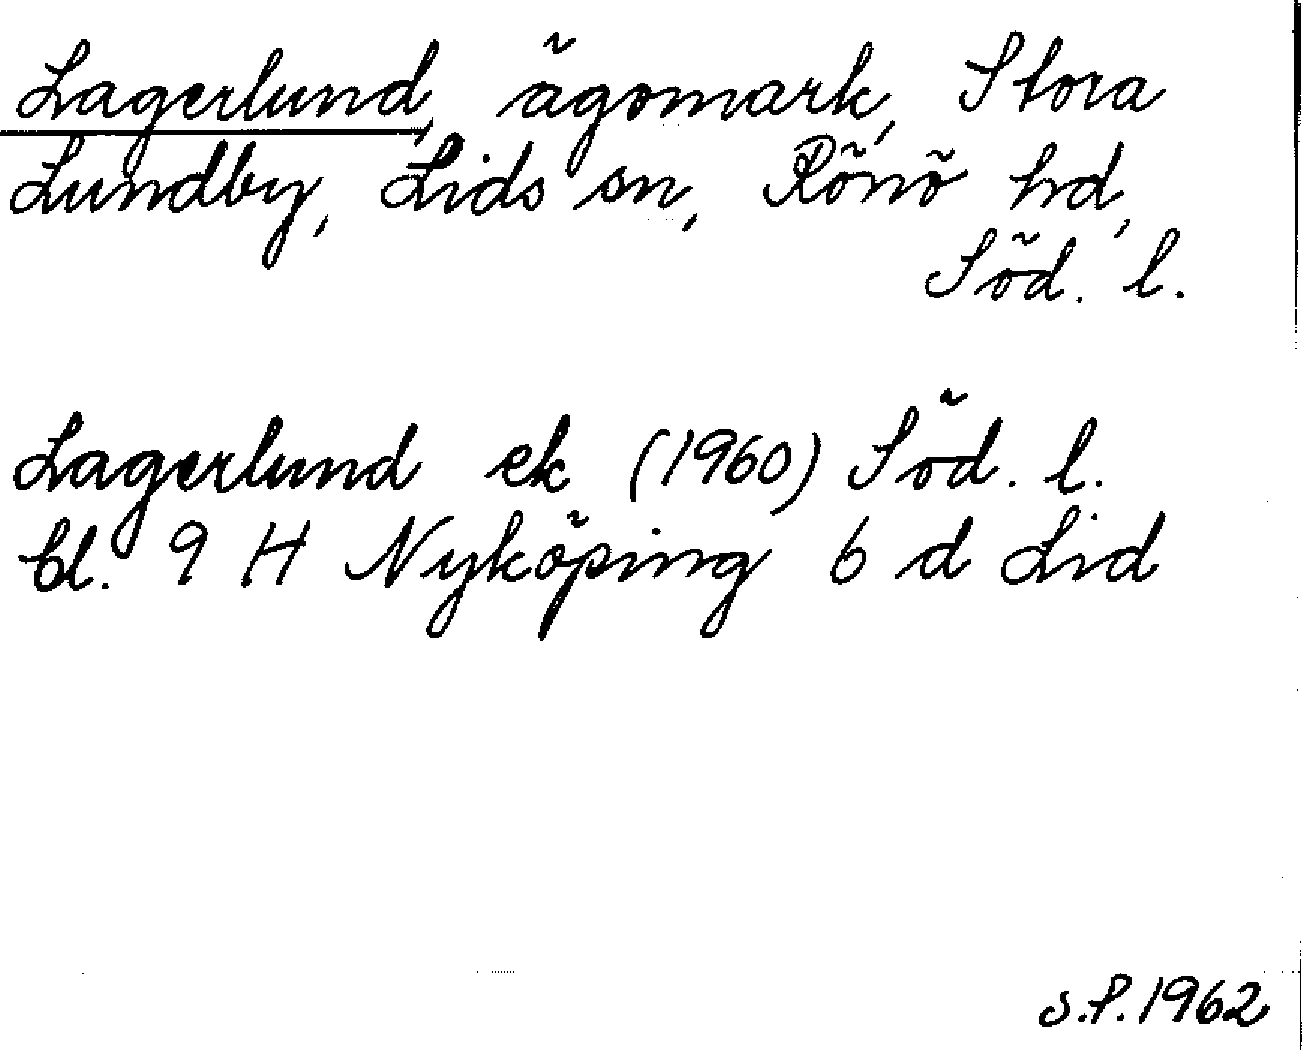 Lagerlund, ägomark, Stora
Lundby, Lids sn, Rönö hd,
Söd. l.
Lagerlund ek (1960) Söd. l.
bl. 9 H Nyköping 6 d Lid
S.P. 1962